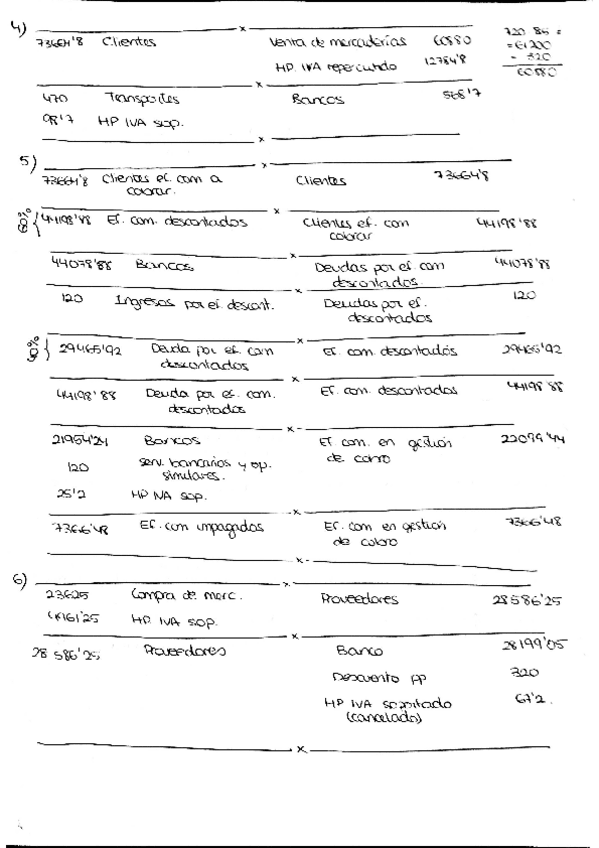 4)
73664'8 Clientes Venta de mercaderías 60880
HP. IVA repercutido 12784'8
720 · 85 =
= 61200
- 320
60880
x
470 Transportes Bancos 568'7
98'7 HP IVA sop.
x
5)
x
73664'8 Clientes ef. com a Clientes 73664'8
cobrar.
x
60% { 44198'88 Ef. com. descontados Clientes ef. com 44198'88
cobrar
x
44078'88 Bancos Deudas por ef. com 44078'88
descontados
x
120 Ingresos por ef. descont. Deudas por ef. 120
descontados
x
40% { 29465'92 Deuda por ef. com Ef. com. descontados 29465'92
descontados
x
44198'88 Deuda por ef. com. Ef. com. descontados 44198'88
descontados
x
21954'24 Bancos Ef com. en gestión 22099'44
de cobro
120 serv. bancarios y op.
similares.
25'2 HP IVA sop.
x
7366'48 Ef. com impagados Ef. com en gestión 7366'48
de cobro
x
6)
x
23625 Compra de merc. Proveedores 28586'25
4961'25 HP. IVA sop.
x
28586'25 Proveedores Banco 28199'05
Descuento PP 320
HP IVA soportado 67'2.
(cancelado)
x